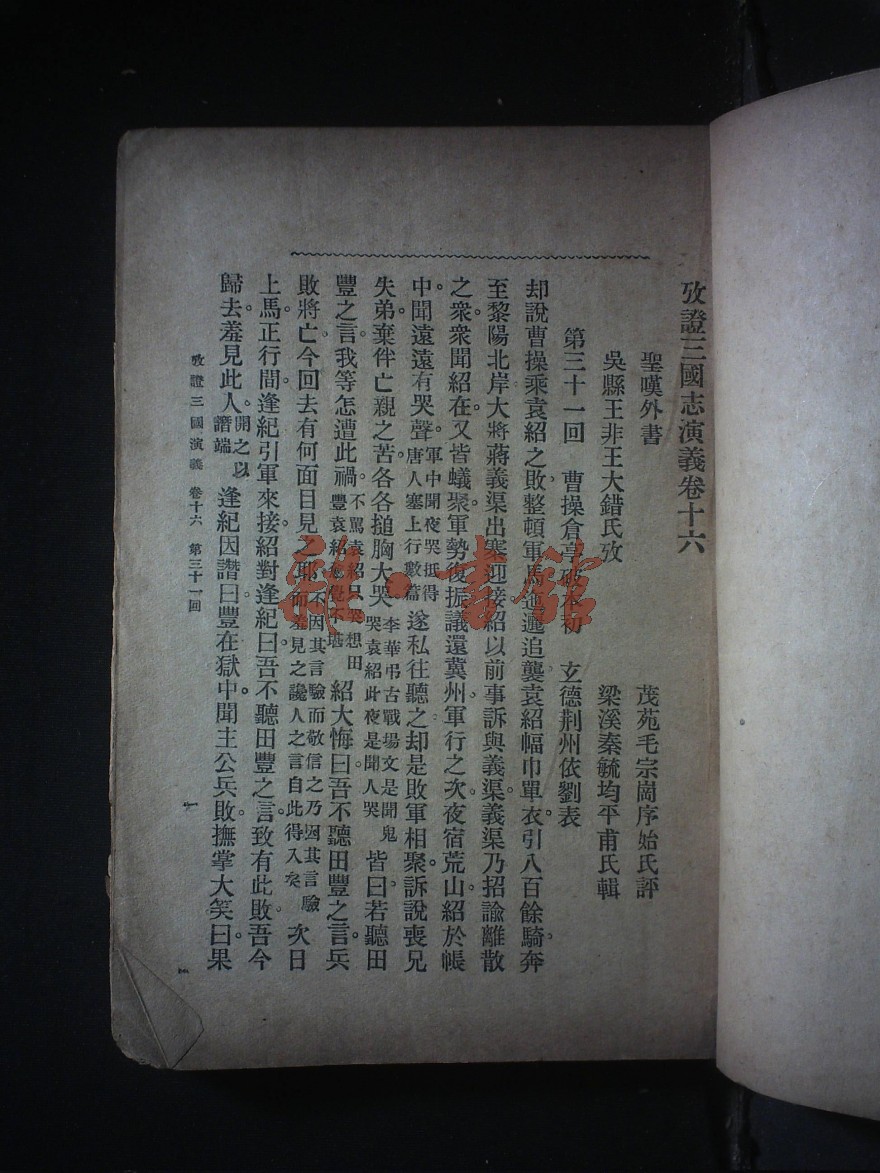 攷證三國志演義卷十六
聖嘆外書
茂苑毛宗崗序始氏評
吳縣王非王大錯氏攷
梁溪秦毓均平甫氏輯
第三十一回 曹操倉亭破本初 玄德荆州依劉表
却說曹操乘袁紹之敗整頓軍馬迤邐追襲袁紹幅巾單衣引八百餘騎奔
至黎陽北岸大將蔣義渠出寨迎接紹以前事訴與義渠義渠乃招諭離散
之衆衆聞紹在又皆蟻聚軍勢復振議還冀州軍行之次夜宿荒山紹於帳
中聞遠遠有哭聲軍中聞夜哭抵得唐人塞上行數篇遂私往聽之却是敗軍相聚訴說喪兄
失弟棄伴亡親之苦各各搥胸大哭李華弔古戰場文是聞鬼哭袁紹此夜是聞人哭皆曰若聽田
豐之言我等怎遭此禍不罵袁紹只想田豐袁紹堪紹大悔曰吾不聽田豐之言兵
敗將亡今回去有何面目見之耶不因其言驗而敬信之乃因其言驗而羞見之讒人之言自此得入矣次日
上馬正行間逢紀引軍來接紹對逢紀曰吾不聽田豐之言致有此敗吾今
歸去羞見此人開之以譖端逢紀因譖曰豐在獄中聞主公兵敗撫掌大笑曰果
攷證三國演義 卷十六 第三十一回
一
雜·書館